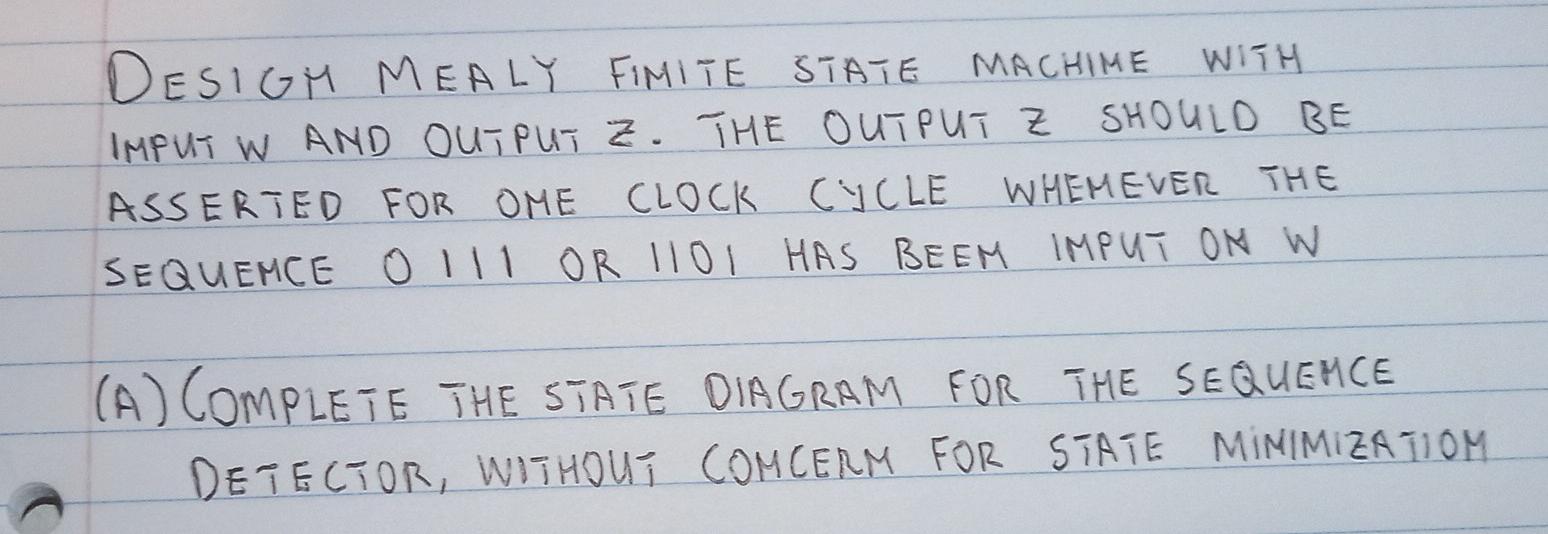 DESIGN MEALY FINITE STATE MACHINE WITH
INPUT W AND OUTPUT Z. THE OUTPUT Z SHOULD BE
ASSERTED FOR ONE CLOCK CYCLE WHENEVER THE
SEQUENCE 0111 OR 1101 HAS BEEN INPUT ON W
(A) COMPLETE THE STATE DIAGRAM FOR THE SEQUENCE
DETECTOR, WITHOUT CONCERN FOR STATE MINIMIZATION